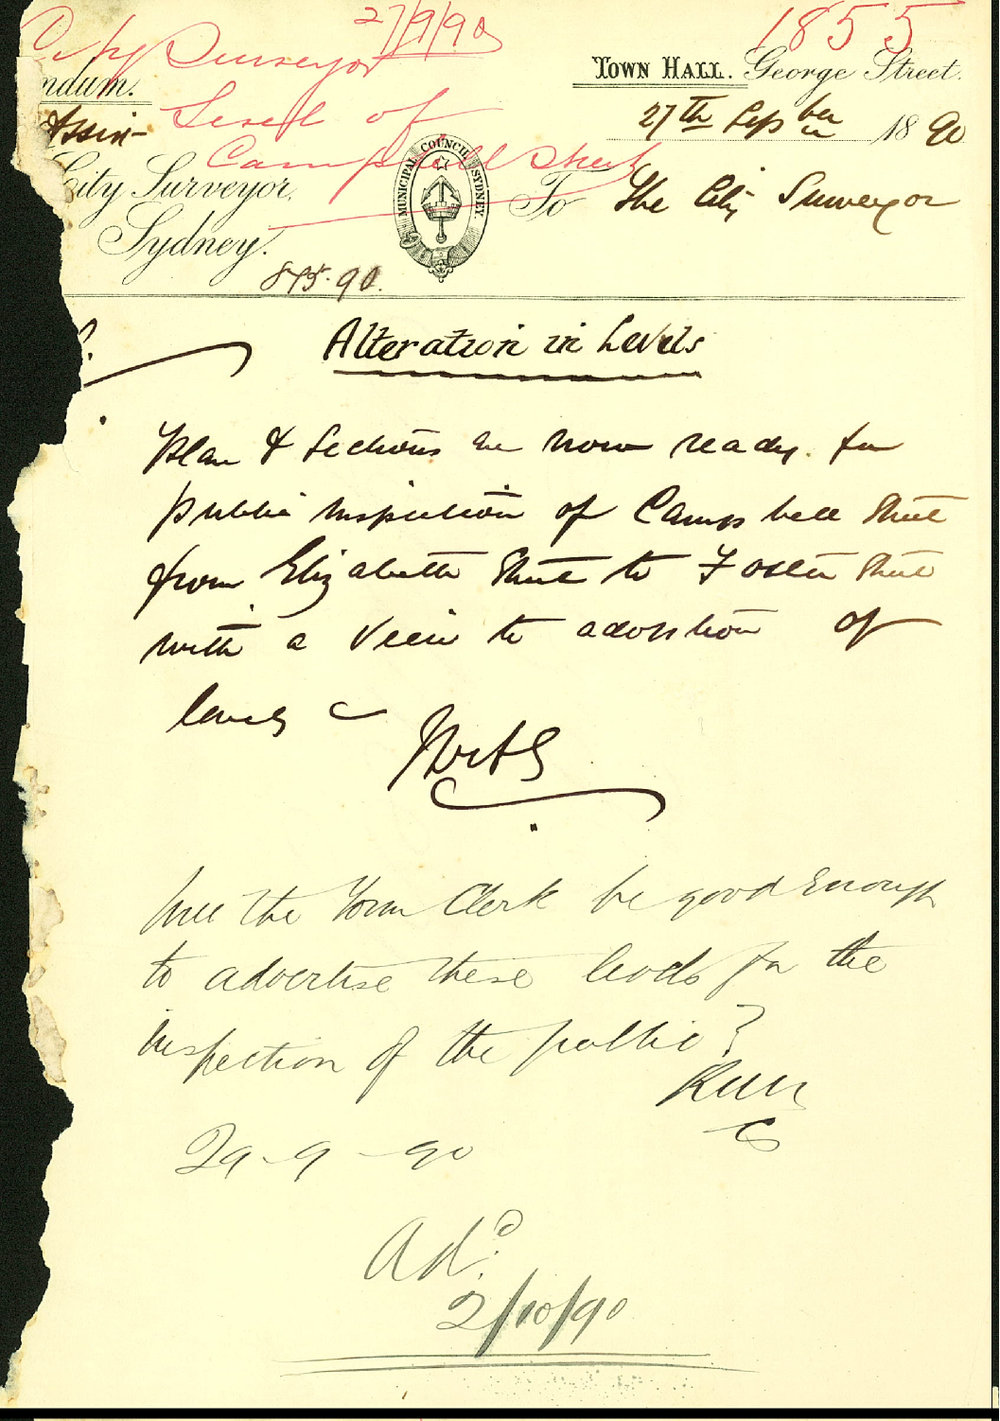 27/9/90
1855
City Surveyor
Level of
Campbell Street
ndum.
Assis-
City Surveyor.
Sydney.
MUNICIPAL COUNCIL SYDNEY
TOWN HALL. George Street.
27th Sepber 1890
To The City Surveyor
875.90.
Alteration in Levels
Plan & Sections are now ready for
public inspection of Campbell Street
from Elizabeth Street to Foster Street
with a view to adoption of
levels
Will the Town Clerk be good enough
to advertise these levels for the
inspection of the public?
29-9-90
Ad.
2/10/90